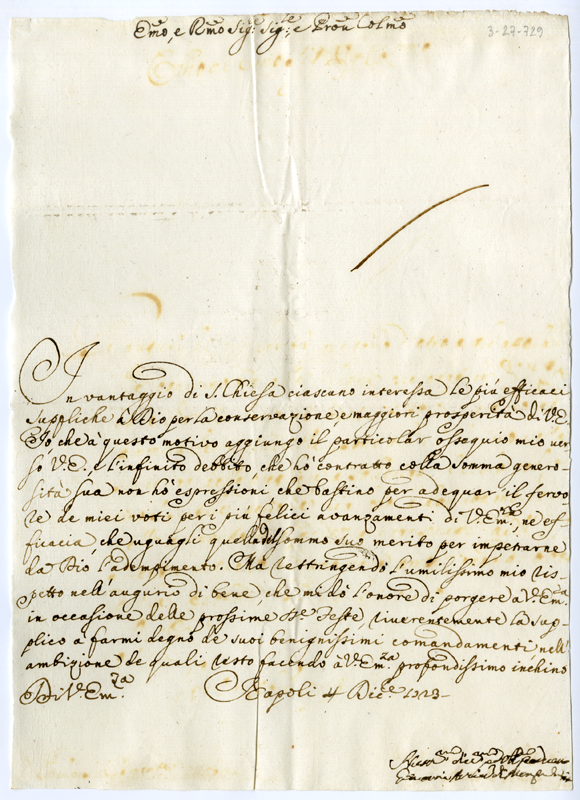 Emo, e Rmo Sig.r Sig.re e Pron Colmo
3-27-729
In vantaggio di S. Chiesa ciascuno interessa le più efficaci
suppliche à Dio per la conservazione e maggiori prosperità di V.E.
Io, che à questo motivo aggiungo il particolar ossequio mio ver
so V.E., e l'infinito debbito, che hò contratto colla somma genero-
sità sua non hò espressioni che bastino per adequar il fervo
re de miei voti per i più felici avanzamenti di V. Em.za, ne ef
ficacia, che uguagli quella del sommo suo merito per impetrarne
da Dio l'adempimento. Mà restringendo l'umilissimo mio ris-
petto nell'augurio di bene, che mi dò l'onore di porgere à V. Em.za
in occasione delle prossime S.te Feste riverentemente la sup-
plico a farmi degno de suoi benignissimi comandamenti nell'
ambizione de quali resto facendo à V. Em.za profondissimo inchino
Di V. Em.za
Napoli 4 Dic.e 1723-